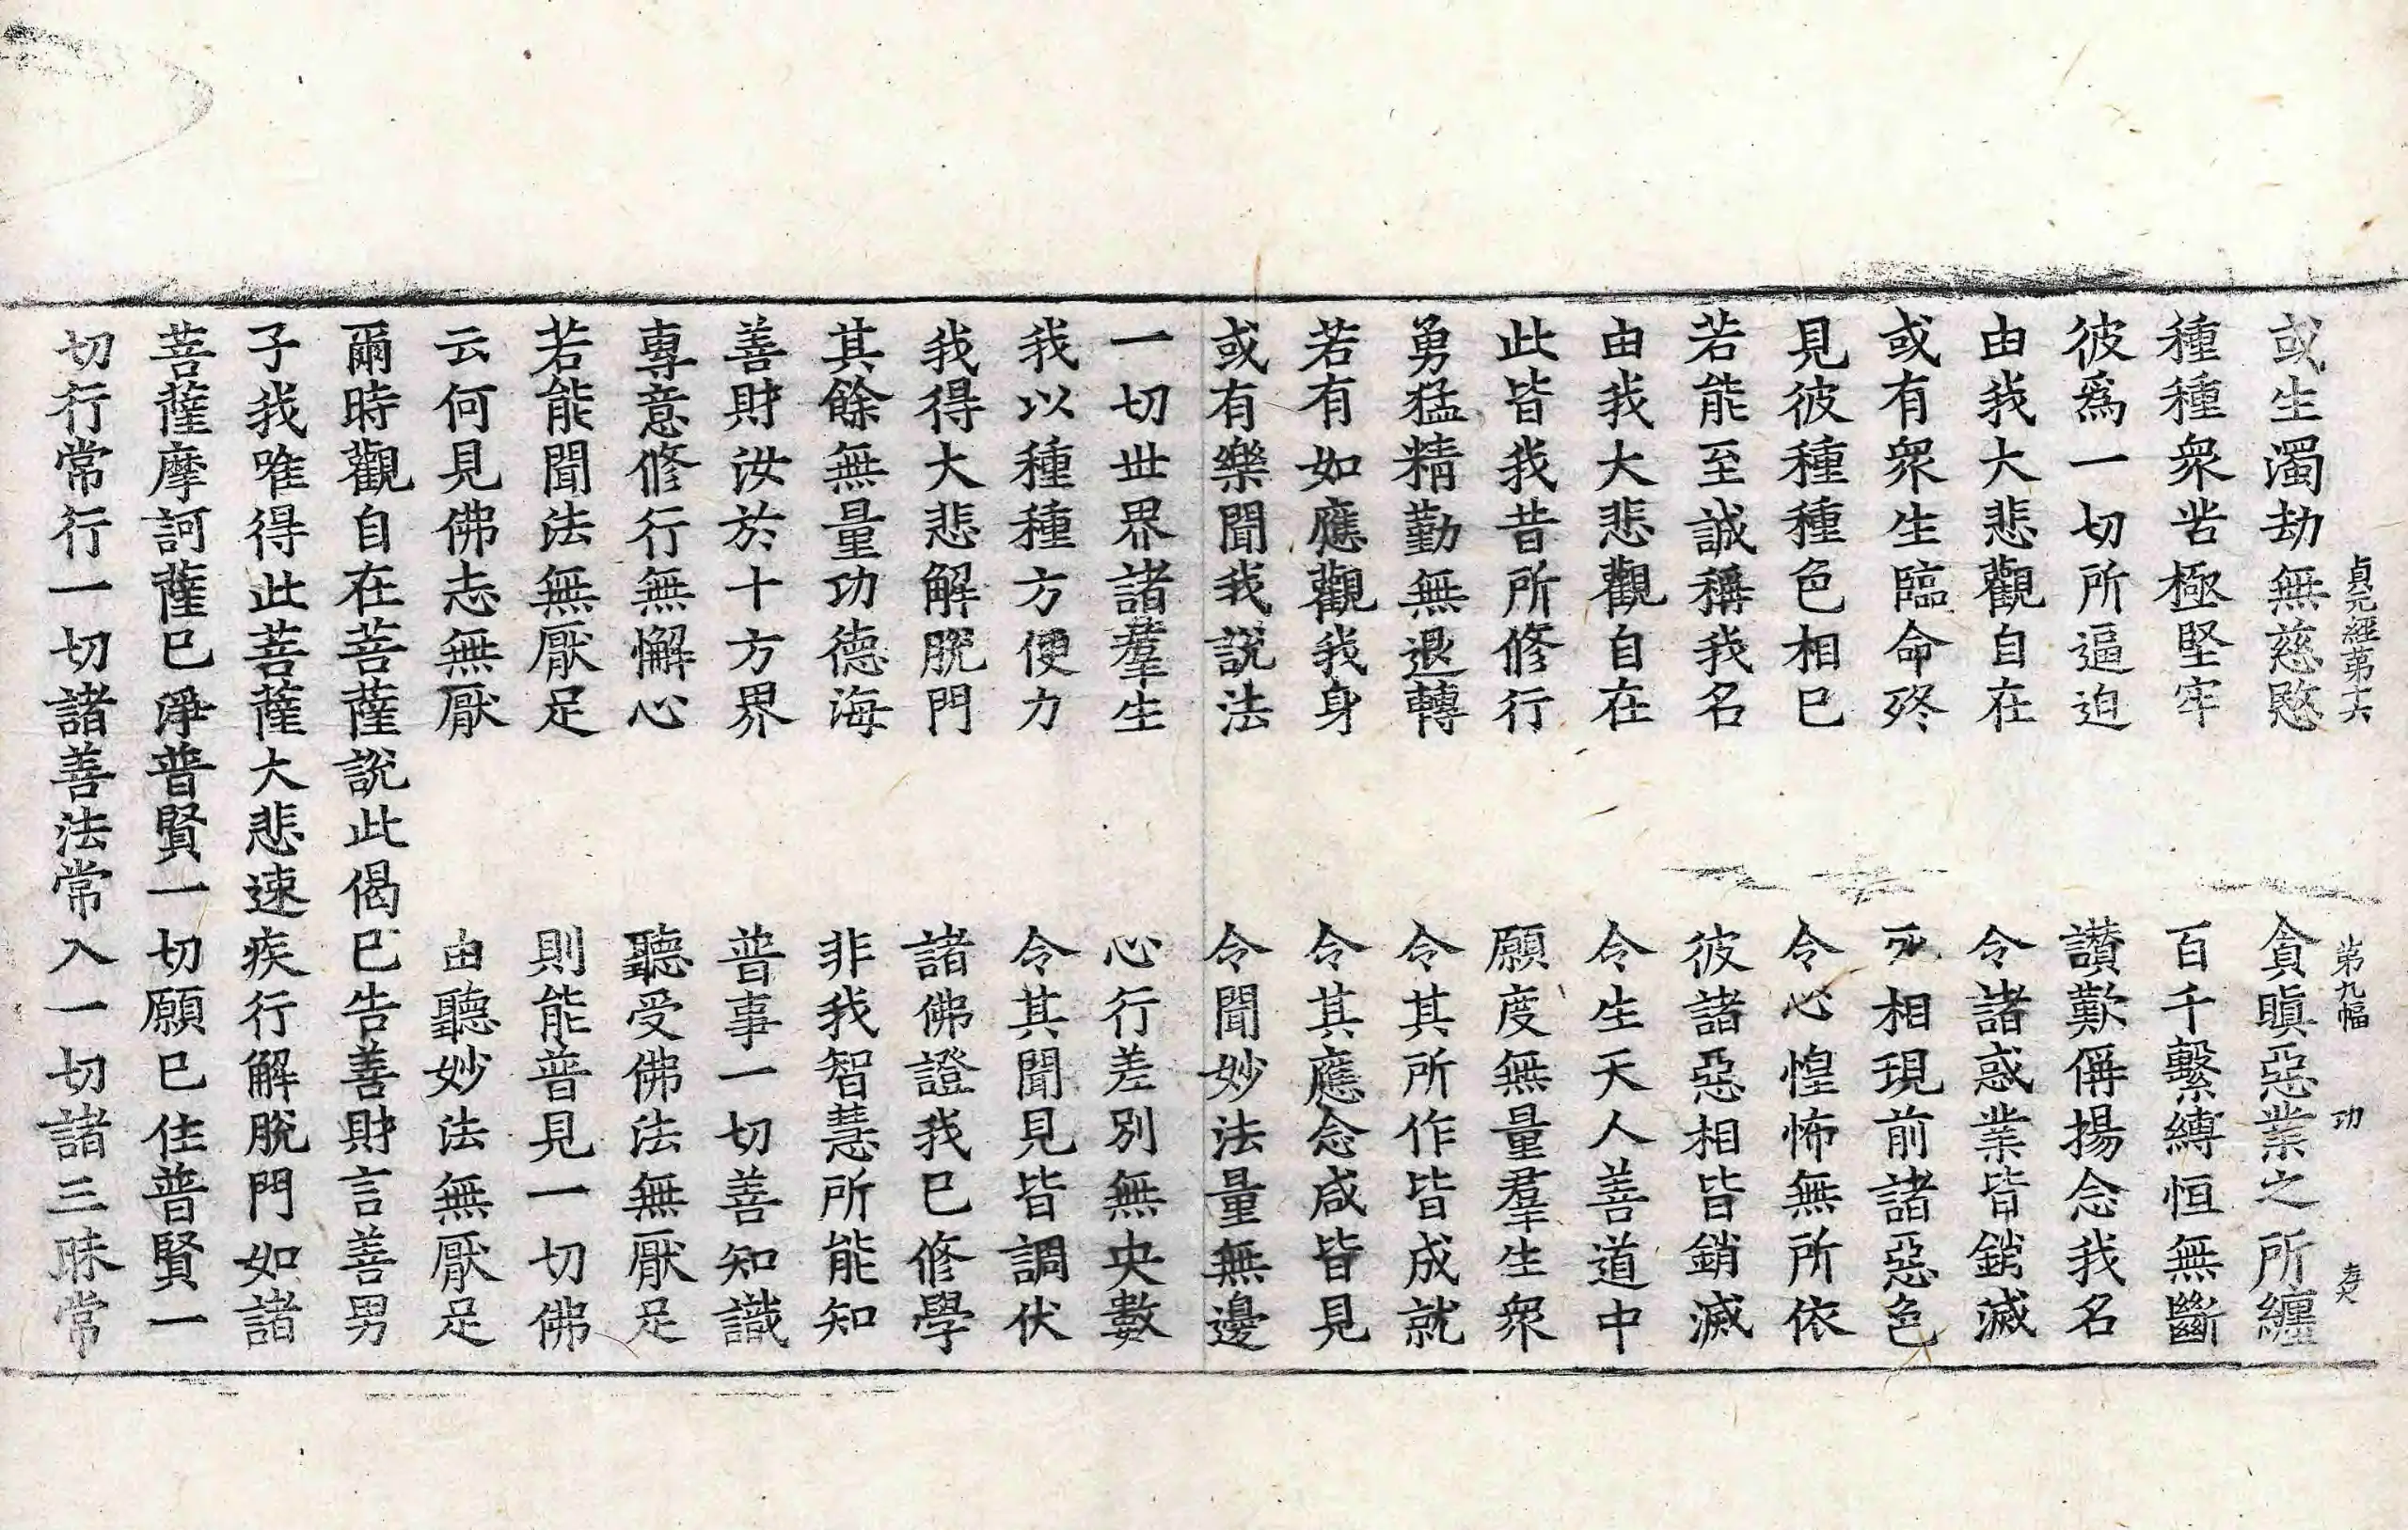 貞元經第十六 第九幅 功
或生濁劫無慈愍 貪瞋惡業之所纏
種種眾苦極堅牢 百千繫縛恒無斷
彼為一切所逼迫 讚歎偁揚念我名
由我大悲觀自在 令諸惑業皆銷滅
或有眾生臨命終 死相現前諸惡色
見彼種種色相已 令心惶怖無所依
若能至誠稱我名 彼諸惡相皆銷滅
由我大悲觀自在 令生天人善道中
此皆我昔所修行 願度無量羣生眾
勇猛精勤無退轉 令其所作皆成就
若有如應觀我身 令其應念咸皆見
或有樂聞我說法 令聞妙法量無邊
一切世界諸羣生 心行差別無央數
我以種種方便力 令其聞見皆調伏
我得大悲解脫門 諸佛證我已修學
其餘無量功德海 非我智慧所能知
善財汝於十方界 普事一切善知識
專意修行無懈心 聽受佛法無厭足
若能聞法無厭足 則能普見一切佛
云何見佛志無厭 由聽妙法無厭足
爾時觀自在菩薩說此偈已告善財言善男
子我唯得此菩薩大悲速疾行解脫門如諸
菩薩摩訶薩已淨普賢一切願已住普賢一
切行常行一切諸善法常入一切諸三昧常